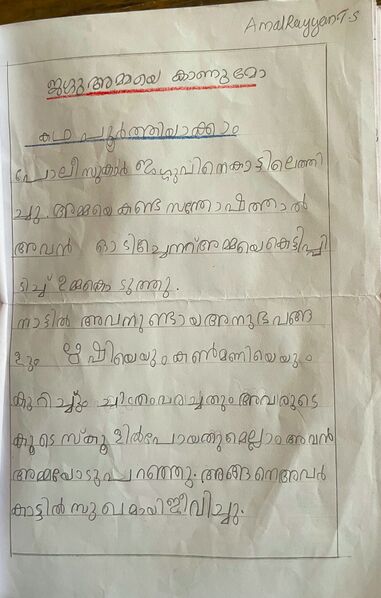 Amal Rayyan T.S
ജഗ്ഗു അമ്മയെ കാണുമോ
കഥ പൂർത്തിയാക്കാം
പോലീസുകാർ ജഗ്ഗുവിനെ കാട്ടിലെത്തി
ച്ചു. അമ്മയെ കണ്ട സന്തോഷത്താൽ
അവൻ ഓടിച്ചെന്ന് അമ്മയെ കെട്ടിപ്പി
ടിച്ച് ഉമ്മ കൊടുത്തു.
നാട്ടിൽ അവനുണ്ടായ അനുഭവങ്ങ
ളും ഋഷിയെയും കൺമണിയെയും
കുറിച്ചും ചിത്രം വരച്ചതും അവരുടെ
കൂടെ സ്കൂളിൽ പോയതുമെല്ലാം അവൻ
അമ്മയോടു പറഞ്ഞു. അങ്ങനെ അവർ
കാട്ടിൽ സുഖമായി ജീവിച്ചു.